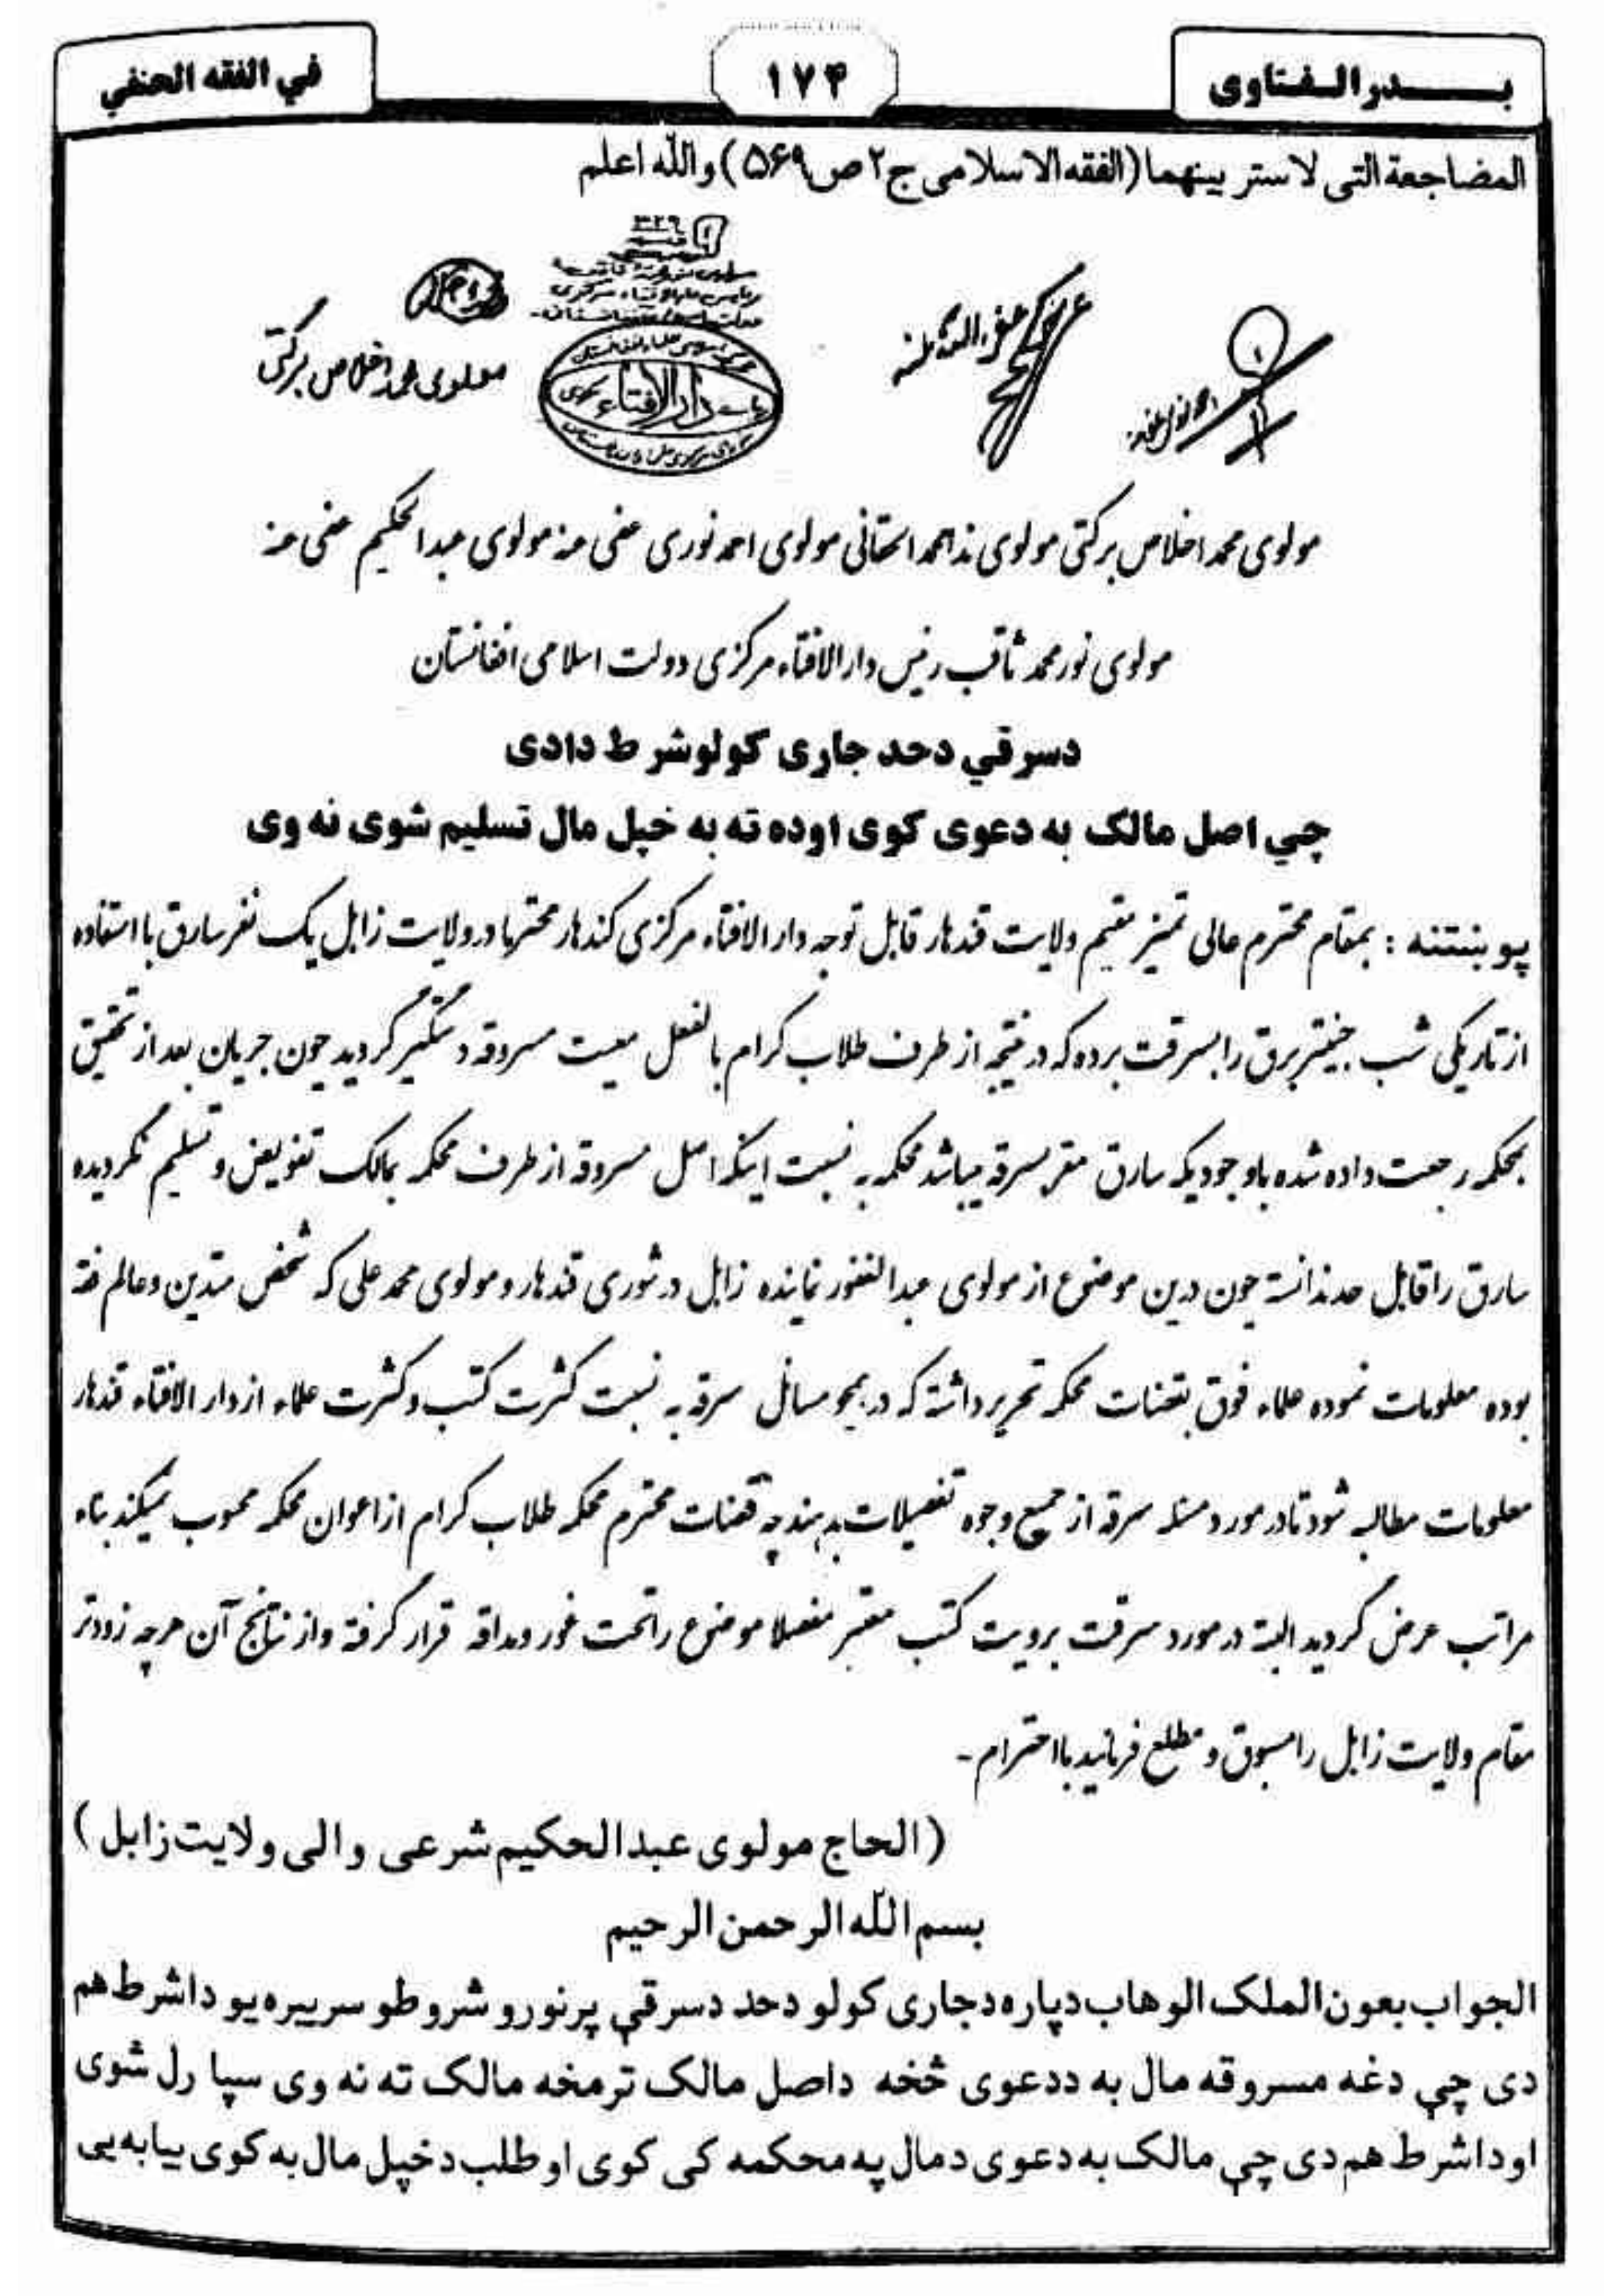 بدر الفتاوى
۱۷۴
في الفقه الحنفي
المضاجعة التى لاستر بينهما (الفقه الاسلامى ج۲ ص۵۶۹) والله اعلم
مولوى محمد اخلاص بركتى
دار الافتاء
مولوى محمد اخلاص بركتى مولوى نداحمد استانى مولوى احمد نورى عفى عنه مولوى عبدالحكيم عفى عنه
مولوى نور محمد ثاقب رئيس دار الافتاء مركزى دولت اسلامى افغانستان
دسرقي دحد جارى كولو شرط دادى
چي اصل مالک به دعوى كوى اوده ته به خپل مال تسليم شوى نه وى
پوښتنه : بمقام محترم عالى تميز مقيم ولايت قندهار قابل توجه دار الافتاء مركزى كندهار محترما در ولايت زابل يک نفر سارق با استفاده
از تاريكى شب جنيتر برق را بسرقت برده كه در نتيجه از طرف طلاب كرام بالفعل معيت مسروقه دستگير گرديد چون جريان بعد از تحقيق
بمحكمه رجعت داده شده باوجوديكه سارق مقر بسرقه ميباشد محكمه به نسبت اينكه اصل مسروقه از طرف محكمه بمالک تفويض و تسليم نگرديده
سارق را قابل حد ندانسته چون درين موضوع از مولوى عبدالغفور نماينده زابل در شورى قندهار و مولوى محمد على كه شخص متدين و عالم فقه
بوده معلومات نموده علماء فوق بقضات محكمه تحرير داشته كه در همچو مسائل سرقه به نسبت كثرت كتب و كثرت علماء از دار الافتاء قندهار
معلومات مطالبه شود تا در مورد مسئله سرقه از جميع وجوه تفصيلات بدهند چه قضات محترم محكمه طلاب كرام از اعوان محكمه محسوب نميكند بناء
مراتب عرض گرديد البته در مورد سرقت برويت كتب معتبر مفصلا موضوع را تحت غور و مداقه قرار گرفته و از نتائج آن هر چه زودتر
مقام ولايت زابل را مسبوق و مطلع فرمائيد با احترام -
(الحاج مولوى عبدالحكيم شرعى والى ولايت زابل)
بسم الله الرحمن الرحيم
الجواب بعون الملک الوهاب دپاره دجارى كولو دحد دسرقې پر نورو شروطو سربيره يو داشرط هم
دى چې دغه مسروقه مال به ددعوى څخه داصل مالک ترمخه مالک ته نه وى سپارل شوى
او داشرط هم دى چې مالک به دعوى دمال په محكمه كى كوى او طلب دخپل مال به كوى بيا به يى